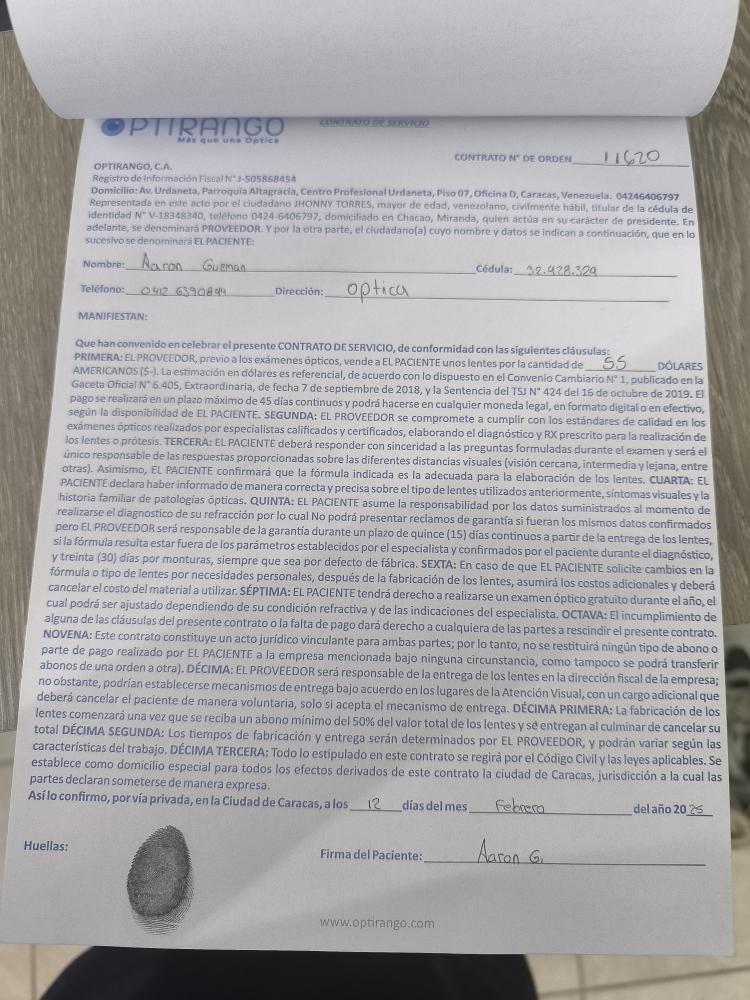 OPTIRANGO
Más que una Óptica
CONTRATO DE SERVICIO
CONTRATO N° DE ORDEN 11620
OPTIRANGO, C.A.
Registro de Información Fiscal N° J-505868454
Domicilio: Av. Urdaneta, Parroquia Altagracia, Centro Profesional Urdaneta, Piso 07, Oficina D, Caracas, Venezuela. 04246406797
Representada en este acto por el ciudadano JHONNY TORRES, mayor de edad, venezolano, civilmente hábil, titular de la cédula de
identidad N° V-18348340, teléfono 0424-6406797, domiciliado en Chacao, Miranda, quien actúa en su carácter de presidente. En
adelante, se denominará PROVEEDOR. Y por la otra parte, el ciudadano(a) cuyo nombre y datos se indican a continuación, que en lo
sucesivo se denominará EL PACIENTE:
Nombre: Aaron Guzman Cédula: 32.928.329
Teléfono: 0412 6390899 Dirección: optica
MANIFIESTAN:
Que han convenido en celebrar el presente CONTRATO DE SERVICIO, de conformidad con las siguientes cláusulas:
PRIMERA: EL PROVEEDOR, previo a los exámenes ópticos, vende a EL PACIENTE unos lentes por la cantidad de 55 DÓLARES
AMERICANOS ($-). La estimación en dólares es referencial, de acuerdo con lo dispuesto en el Convenio Cambiario N° 1, publicado en la
Gaceta Oficial N° 6.405, Extraordinaria, de fecha 7 de septiembre de 2018, y la Sentencia del TSJ N° 424 del 16 de octubre de 2019. El
pago se realizará en un plazo máximo de 45 días continuos y podrá hacerse en cualquier moneda legal, en formato digital o en efectivo,
según la disponibilidad de EL PACIENTE. SEGUNDA: EL PROVEEDOR se compromete a cumplir con los estándares de calidad en los
exámenes ópticos realizados por especialistas calificados y certificados, elaborando el diagnóstico y RX prescrito para la realización de
los lentes o prótesis. TERCERA: EL PACIENTE deberá responder con sinceridad a las preguntas formuladas durante el examen y será el
único responsable de las respuestas proporcionadas sobre las diferentes distancias visuales (visión cercana, intermedia y lejana, entre
otras). Asimismo, EL PACIENTE confirmará que la fórmula indicada es la adecuada para la elaboración de los lentes. CUARTA: EL
PACIENTE declara haber informado de manera correcta y precisa sobre el tipo de lentes utilizados anteriormente, síntomas visuales y la
historia familiar de patologías ópticas. QUINTA: EL PACIENTE asume la responsabilidad por los datos suministrados al momento de
realizarse el diagnostico de su refracción por lo cual No podrá presentar reclamos de garantía si fueran los mismos datos confirmados
pero EL PROVEEDOR será responsable de la garantía durante un plazo de quince (15) días continuos a partir de la entrega de los lentes,
si la fórmula resulta estar fuera de los parámetros establecidos por el especialista y confirmados por el paciente durante el diagnóstico,
y treinta (30) días por monturas, siempre que sea por defecto de fábrica. SEXTA: En caso de que EL PACIENTE solicite cambios en la
fórmula o tipo de lentes por necesidades personales, después de la fabricación de los lentes, asumirá los costos adicionales y deberá
cancelar el costo del material a utilizar. SÉPTIMA: EL PACIENTE tendrá derecho a realizarse un examen óptico gratuito durante el año, el
cual podrá ser ajustado dependiendo de su condición refractiva y de las indicaciones del especialista. OCTAVA: El incumplimiento de
alguna de las cláusulas del presente contrato o la falta de pago dará derecho a cualquiera de las partes a rescindir el presente contrato.
NOVENA: Este contrato constituye un acto jurídico vinculante para ambas partes; por lo tanto, no se restituirá ningún tipo de abono o
parte de pago realizado por EL PACIENTE a la empresa mencionada bajo ninguna circunstancia, como tampoco se podrá transferir
abonos de una orden a otra). DÉCIMA: EL PROVEEDOR será responsable de la entrega de los lentes en la dirección fiscal de la empresa;
no obstante, podrían establecerse mecanismos de entrega bajo acuerdo en los lugares de la Atención Visual, con un cargo adicional que
deberá cancelar el paciente de manera voluntaria, solo si acepta el mecanismo de entrega. DÉCIMA PRIMERA: La fabricación de los
lentes comenzará una vez que se reciba un abono mínimo del 50% del valor total de los lentes y se entregan al culminar de cancelar su
total DÉCIMA SEGUNDA: Los tiempos de fabricación y entrega serán determinados por EL PROVEEDOR, y podrán variar según las
características del trabajo. DÉCIMA TERCERA: Todo lo estipulado en este contrato se regirá por el Código Civil y las leyes aplicables. Se
establece como domicilio especial para todos los efectos derivados de este contrato la ciudad de Caracas, jurisdicción a la cual las
partes declaran someterse de manera expresa.
Así lo confirmo, por vía privada, en la Ciudad de Caracas, a los 12 días del mes Febrero del año 2025
Huellas:
Firma del Paciente: Aaron G.
www.optirango.com